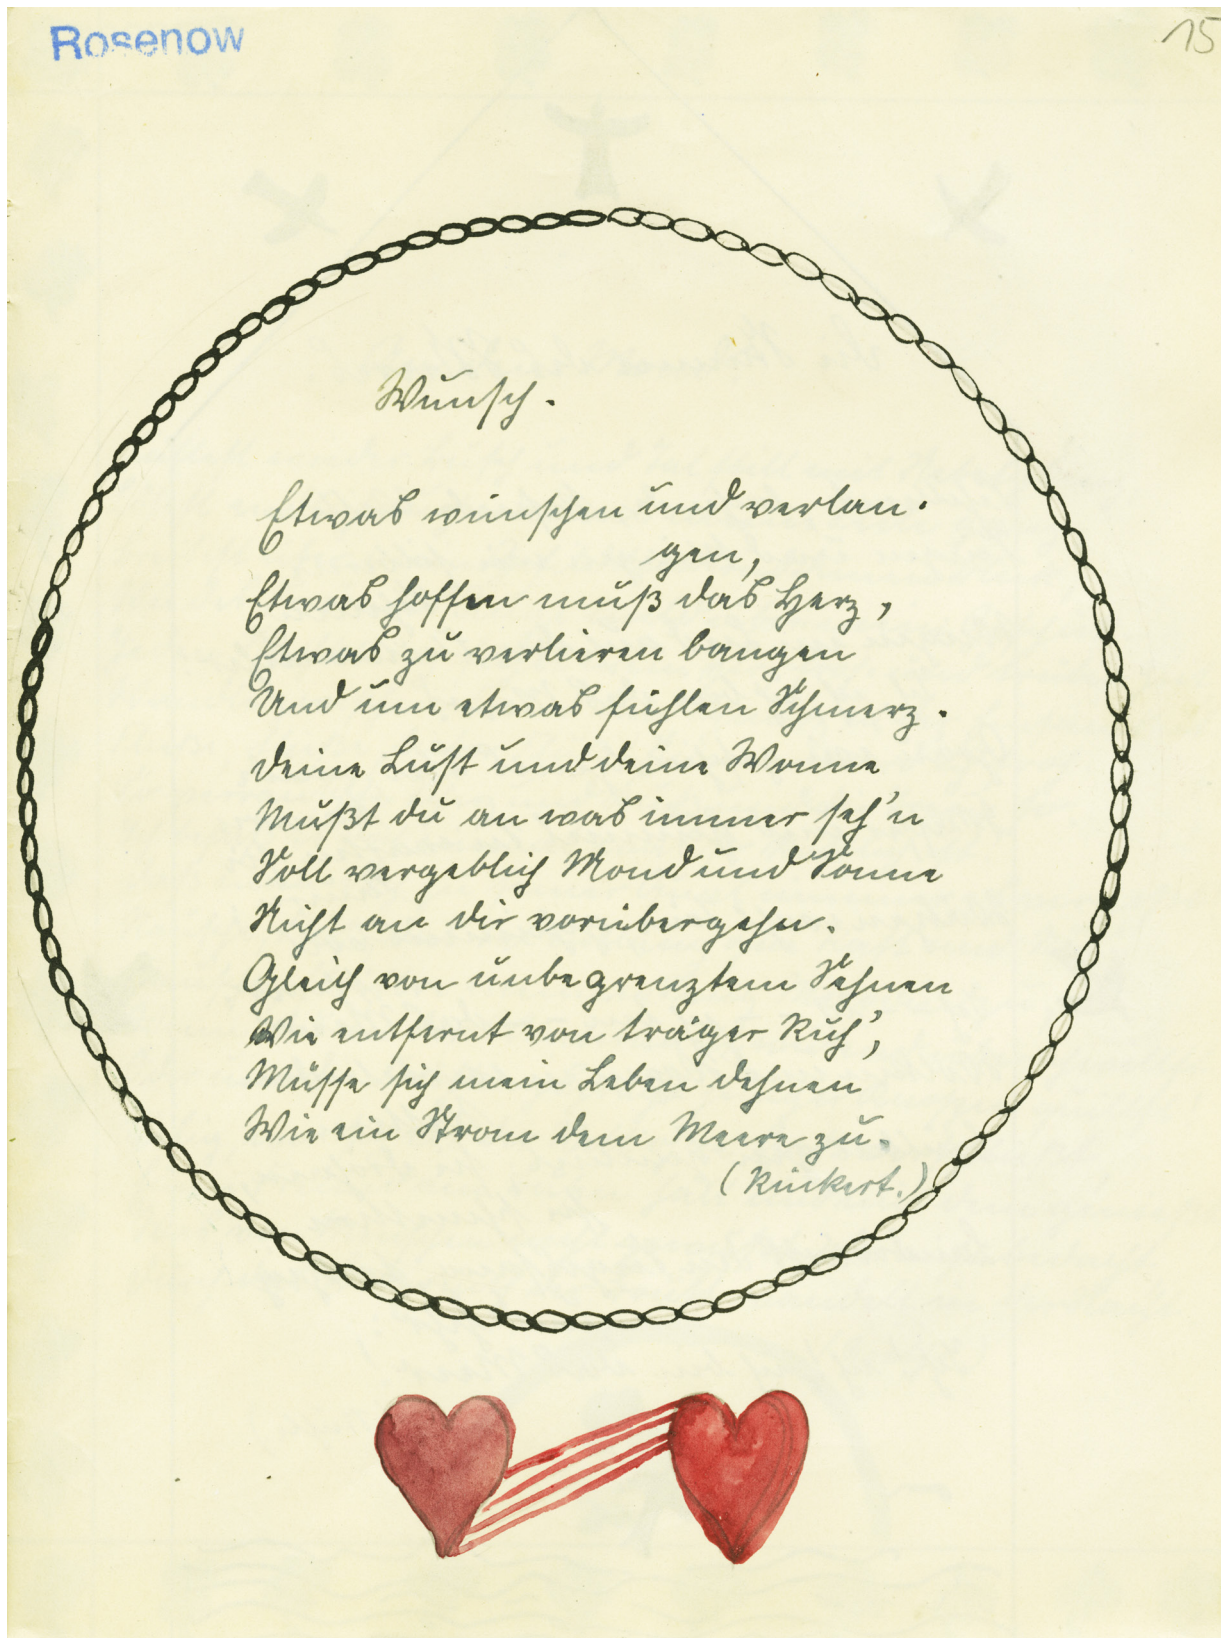 Rosenow
15
Wunsch.
Etwas wünschen und verlan-
gen,
Etwas hoffen muß das Herz,
Etwas zu verlieren bangen
Und um etwas fühlen Schmerz.
Deine Lust und deine Wonne
Mußt du an was immer seh'n
Soll vergeblich Mond und Sonne
Nicht an dir vorübergehn.
Gleich von unbegrenztem Sehnen
Wie entfernt von träger Ruh',
Müsse sich mein Leben dehnen
Wie ein Strom dem Meere zu.
(Rückert.)